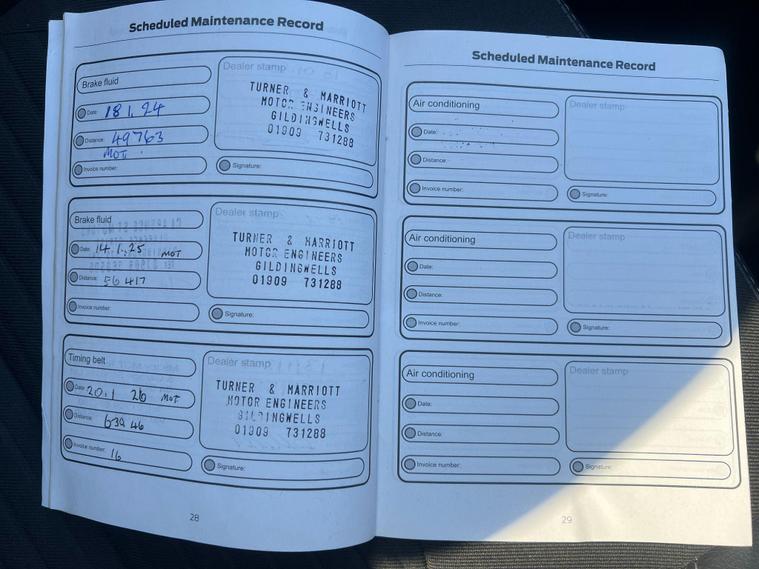 Scheduled Maintenance Record
Brake fluid
Date: 18 1. 24
Distance: 49763
MOT
Invoice number:
Dealer stamp
TURNER & MARRIOTT
MOTOR ENGINEERS
GILDINGWELLS
01909 731288
Signature:
Brake fluid
Date: 14.1.25 MOT
Distance: 56 417
Invoice number:
Dealer stamp
TURNER & MARRIOTT
MOTOR ENGINEERS
GILDINGWELLS
01909 731288
Signature:
Timing belt
Date: 20.1 26 MOT
Distance: 639 46
Invoice number: 16
Dealer stamp
TURNER & MARRIOTT
MOTOR ENGINEERS
GILDINGWELLS
01909 731288
Signature:
28
Scheduled Maintenance Record
Air conditioning
Date:
Distance:
Invoice number:
Dealer stamp
Signature:
Air conditioning
Date:
Distance:
Invoice number:
Dealer stamp
Signature:
Air conditioning
Date:
Distance:
Invoice number:
Dealer stamp
Signature:
29